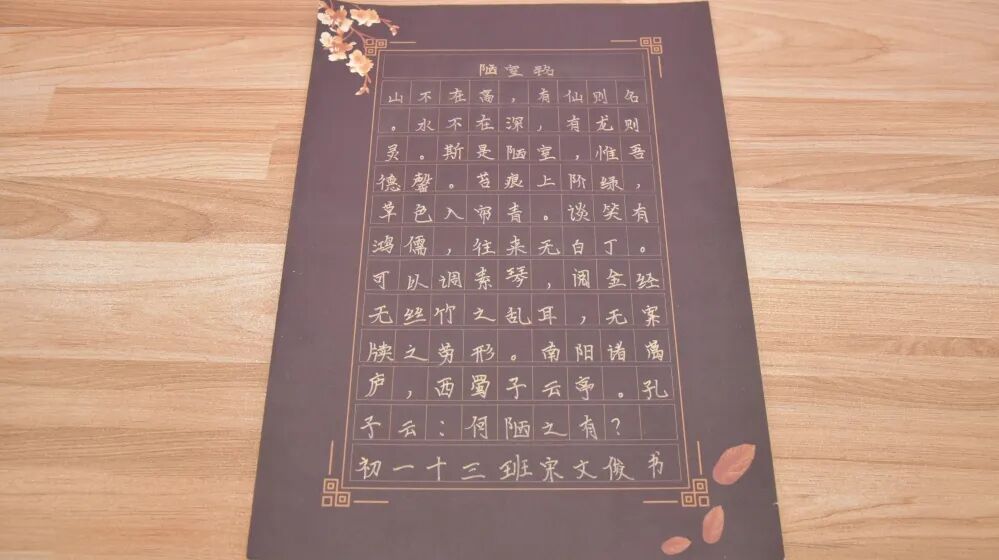 陋室铭
山不在高，有仙则名
。水不在深，有龙则
灵。斯是陋室，惟吾
德馨。苔痕上阶绿，
草色入帘青。谈笑有
鸿儒，往来无白丁。
可以调素琴，阅金经
无丝竹之乱耳，无案
牍之劳形。南阳诸葛
庐，西蜀子云亭。孔
子云：何陋之有？
初一十三班宋文俊书